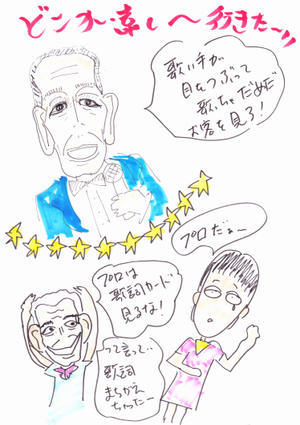 へ行きたーい
歌い手が
目をつぶって
歌っちゃだめだ
お客を見ろ!
プロだぁー
プロは
歌詞カード
見るな!
って言って‥
歌詞
まちがえ
ちゃったー